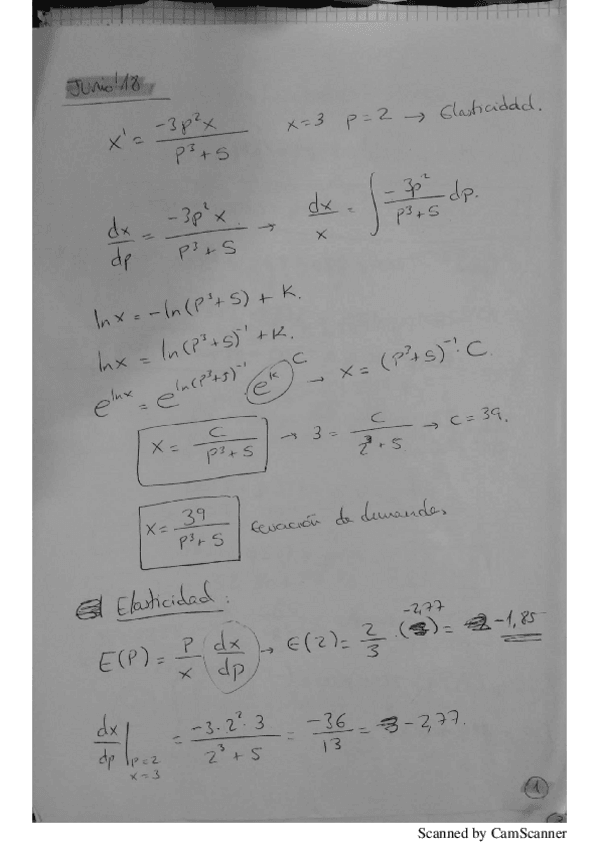 Junio'18
x' = -3p²x / p³+5    x=3  p=2 → Elasticidad.
dx/dp = -3p²x / p³+5 → dx/x = ∫ -3p² / p³+5 dp.
lnx = -ln(p³+5) + K.
lnx = ln(p³+5)⁻¹ + K.
e^lnx = e^ln(p³+5)⁻¹ · e^k C → x = (p³+5)⁻¹ · C
x = C / p³+5 → 3 = C / 2³+5 → C = 39.
x = 39 / p³+5  Ecuación de demanda.
Elasticidad:
E(P) = P/x · dx/dp → E(2) = 2/3 · (-2,77) = -1,85
dx/dp | p=2 x=3 = -3·2²·3 / 2³+5 = -36/13 = -2,77.
1
Scanned by CamScanner